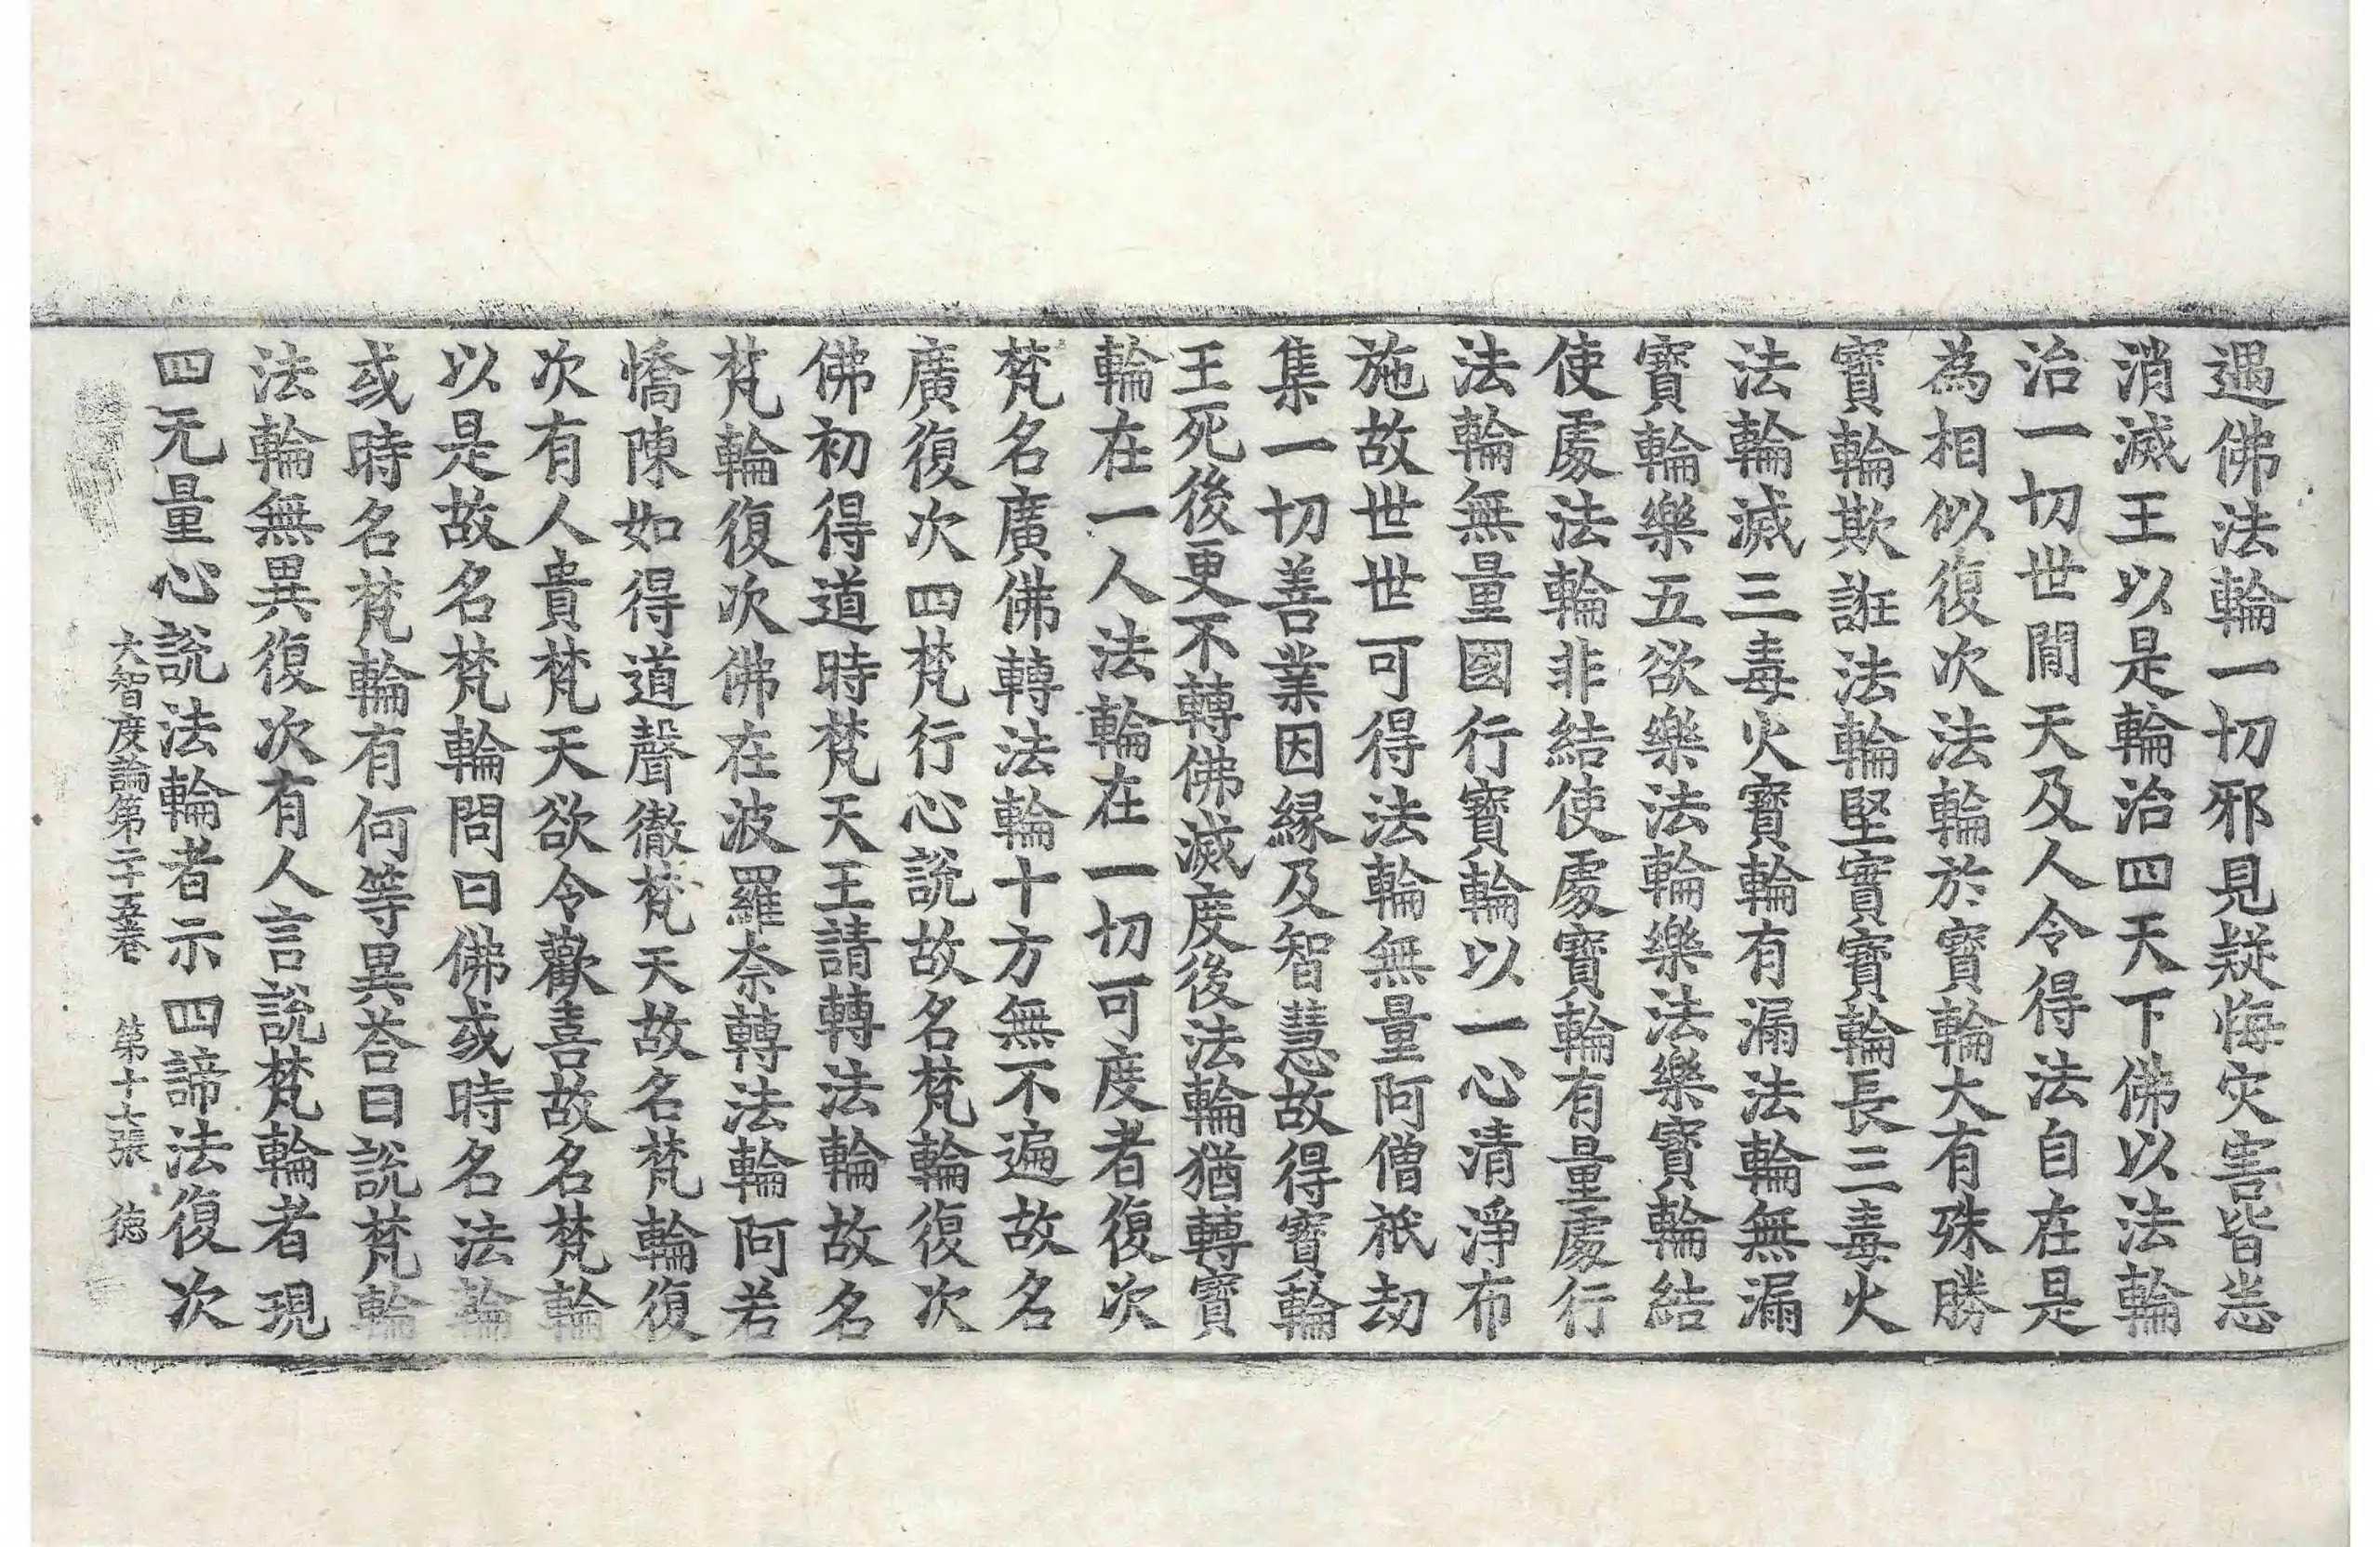 遇佛法輪一切邪見疑悔灾害皆悉
消滅王以是輪治四天下佛以法輪
治一切世間天及人令得法自在是
為相似復次法輪於寶輪大有殊勝
寶輪欺誑法輪堅實寶輪長三毒火
法輪滅三毒火寶輪有漏法輪無漏
寶輪樂五欲樂法輪樂法樂寶輪結
使處法輪非結使處寶輪有量處行
法輪無量國行寶輪以一心清淨布
施故世世可得法輪無量阿僧祇劫
集一切善業因緣及智慧故得寶輪
王死後更不轉佛滅度後法輪猶轉寶
輪在一人法輪在一切可度者復次
梵名廣佛轉法輪十方無不遍故名
廣復次四梵行心說故名梵輪復次
佛初得道時梵天王請轉法輪故名
梵輪復次佛在波羅奈轉法輪阿若
憍陳如得道聲徹梵天故名梵輪復
次有人貴梵天欲令歡喜故名梵輪
以是故名梵輪問曰佛或時名法輪
或時名梵輪有何等異荅曰說梵輪
法輪無異復次有人言說梵輪者現
四无量心說法輪者示四諦法復次
大智度論第二十五卷 第十七張 德